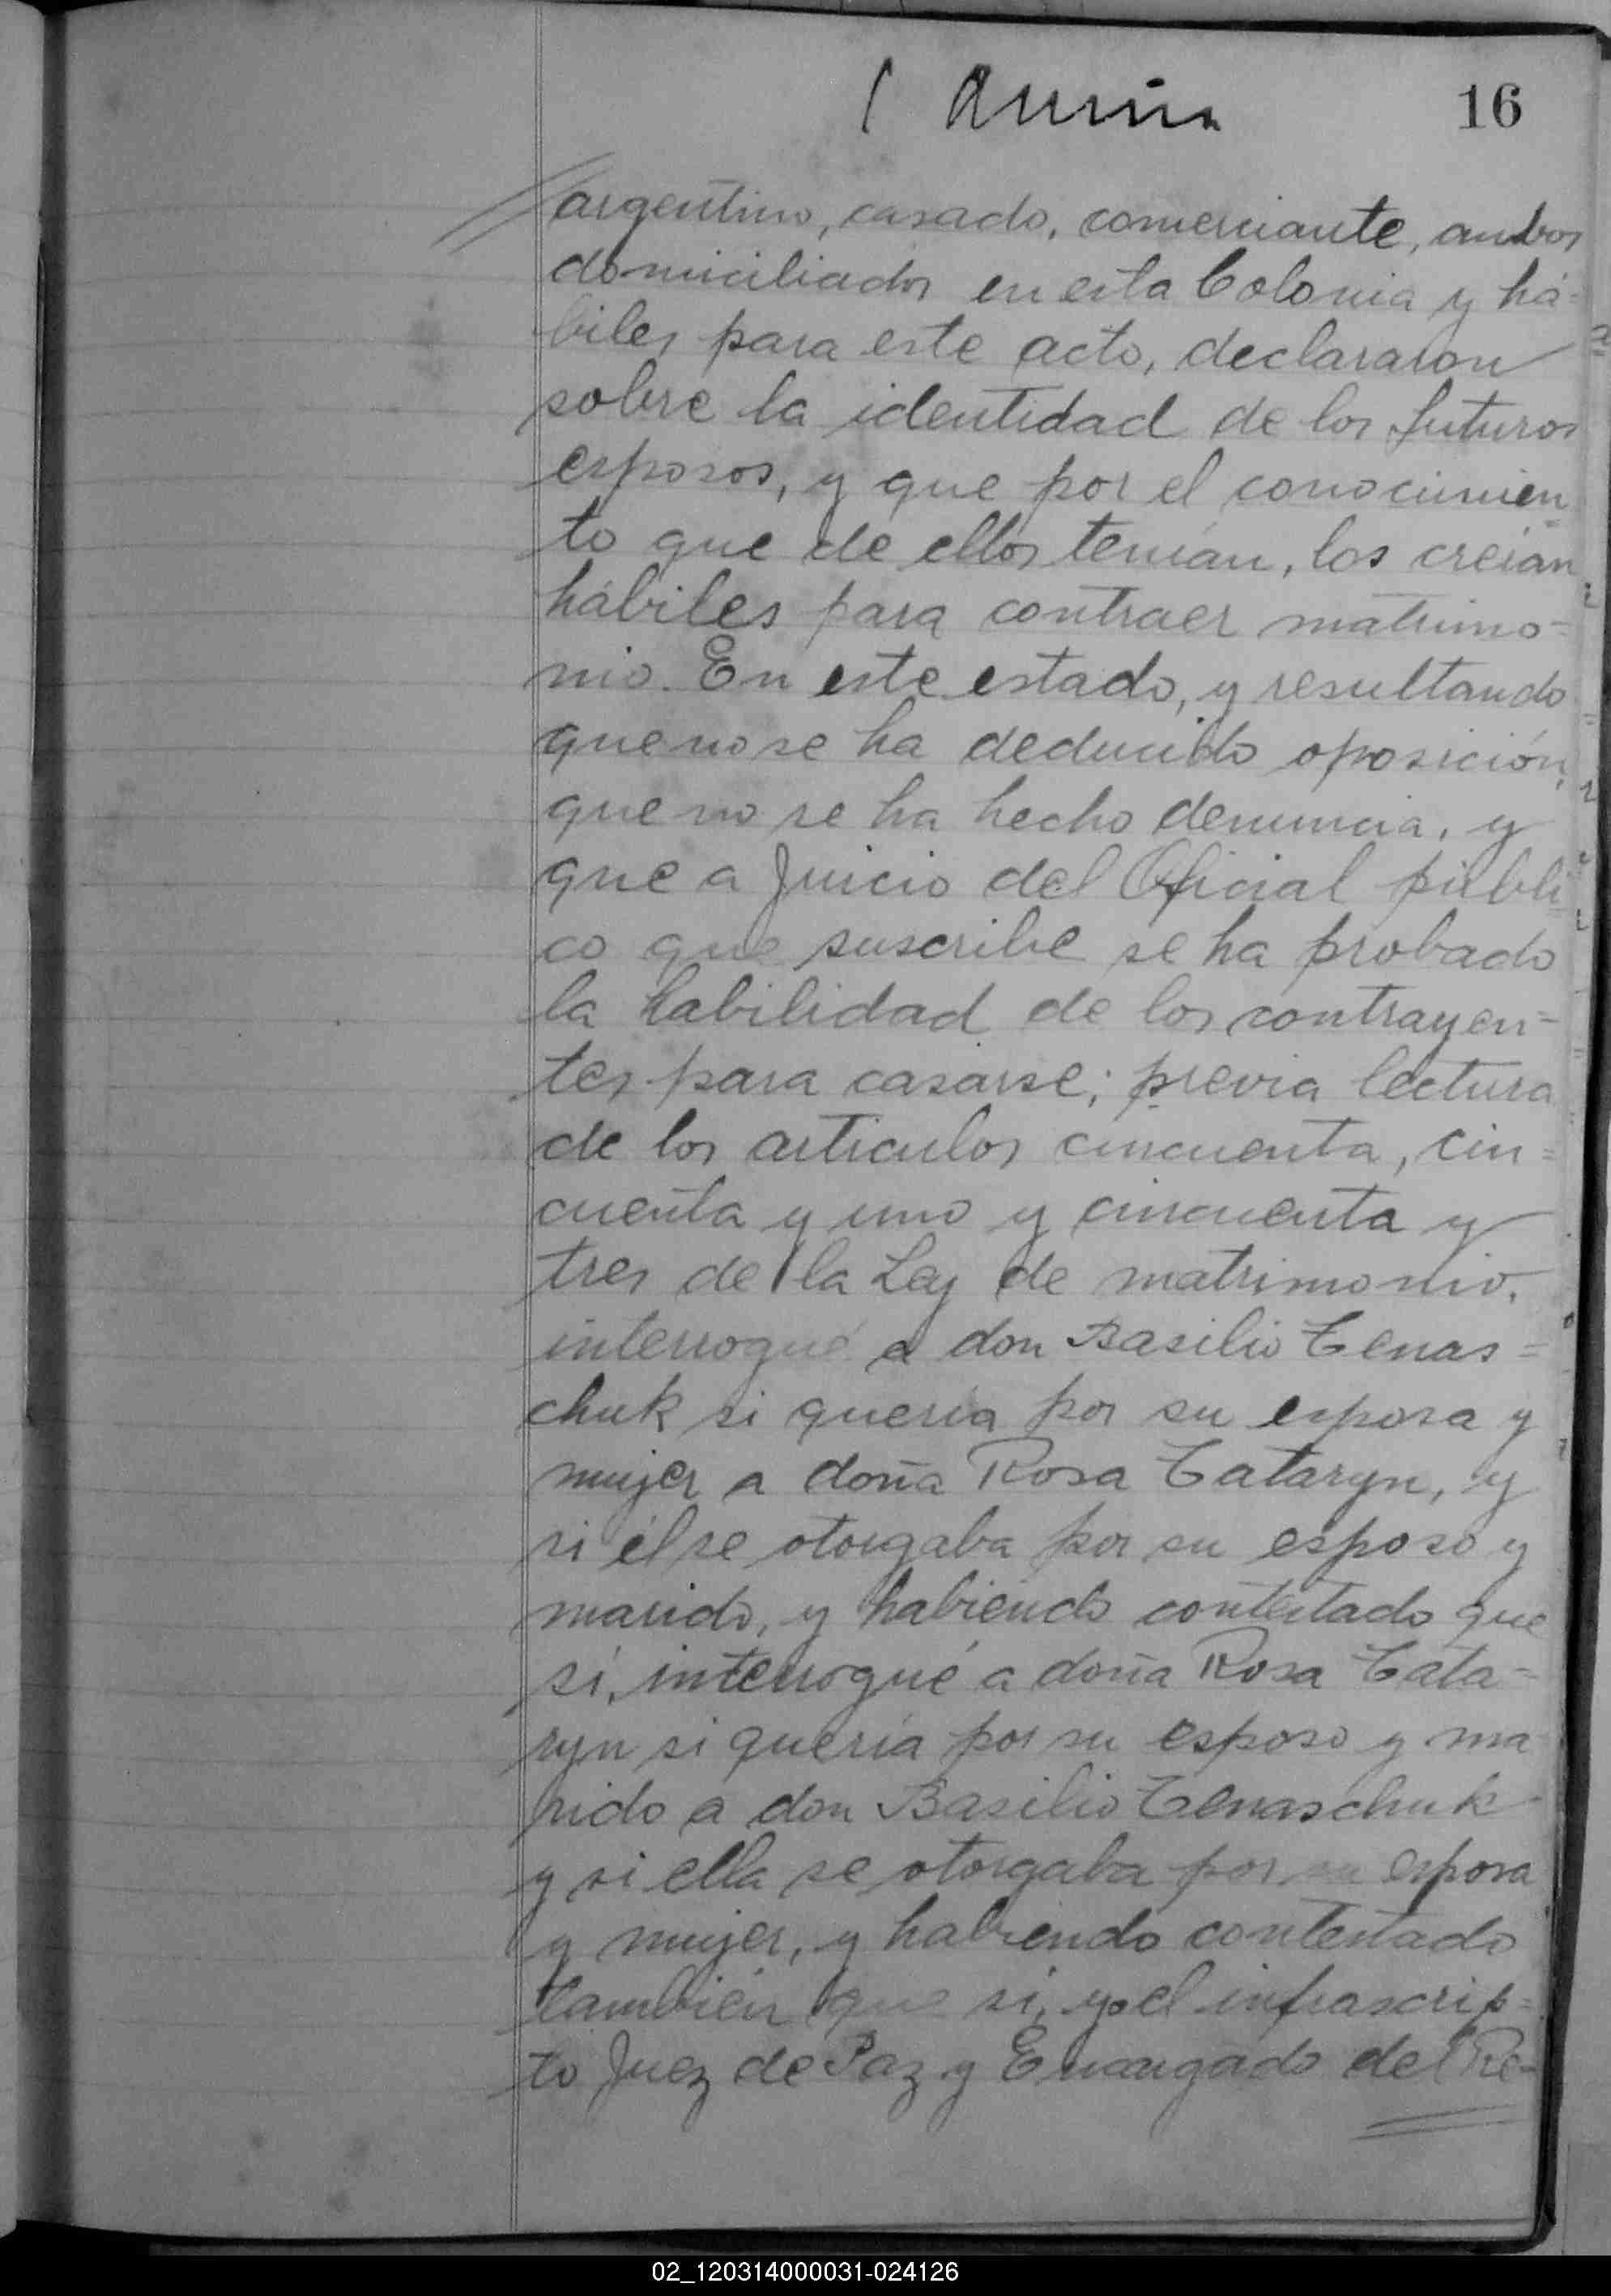 16
argentino, casado, comerciante, ambos
domiciliados en esta Colonia y há-
biles para este acto, declararon
sobre la identidad de los futuros
esposos, y que por el conocimien
to que de ellos tenían, los creían
hábiles para contraer matrimo=
nio. En este estado, y resultando
que no se ha deducido oposición,
que no se ha hecho denuncia, y
que a Juicio del Oficial públi
co que suscribe se ha probado
la habilidad de los contrayen=
tes para casarse; previa lectura
de los articulos cincuenta, cin=
cuenta y uno y cincuenta y
tres de la Ley de matrimonio,
interrogué a don Basilio Tenas=
chuk si quería por su esposa y
mujer a doña Rosa Tataryn, y
si él se otorgaba por su esposo y
marido, y habiendo contestado que
sí, interrogué a doña Rosa Tata=
ryn si quería por su esposo y ma
rido a don Basilio Tenaschuk
y si ella se otorgaba por su esposa
y mujer, y habiendo contestado
también que sí, yo el infrascrip=
to Juez de Paz y Encargado del Re=
02_120314000031-024126